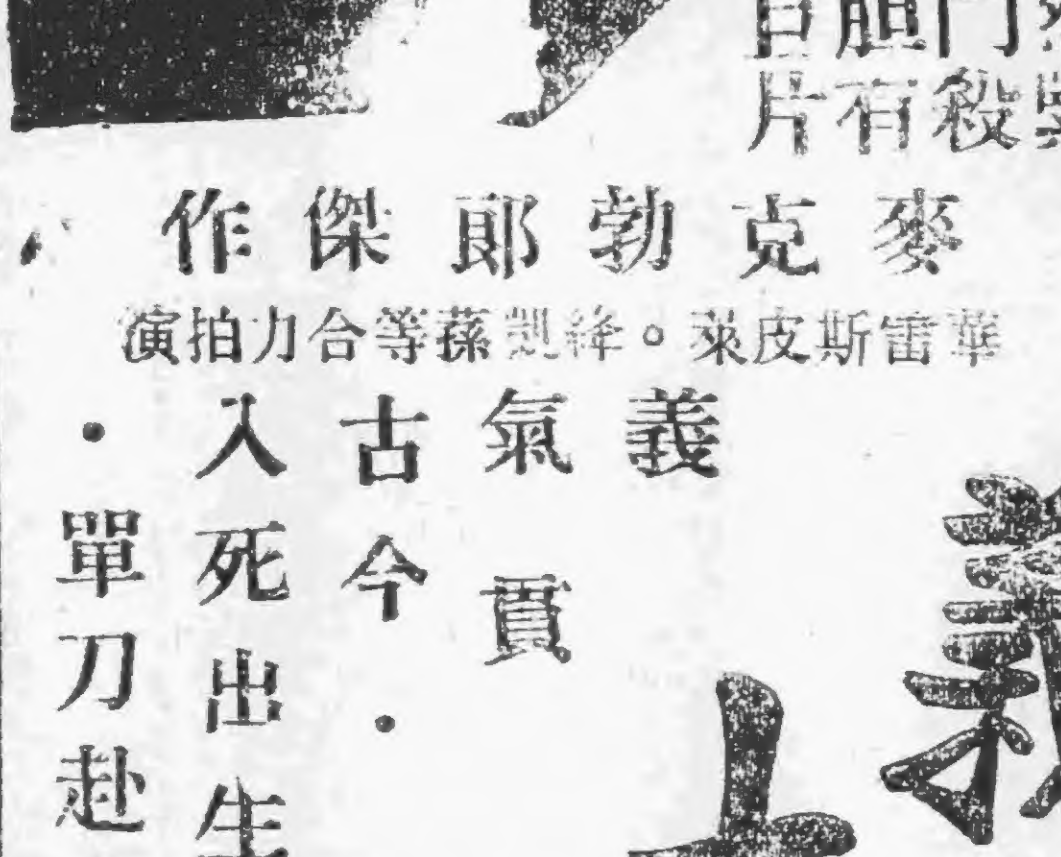 胆門
片有殺
麥克勃郎傑作
華雷斯皮萊。絳凱蓀等合力拍演
義氣貫
古今·
入死出生
·單刀赴
義
士